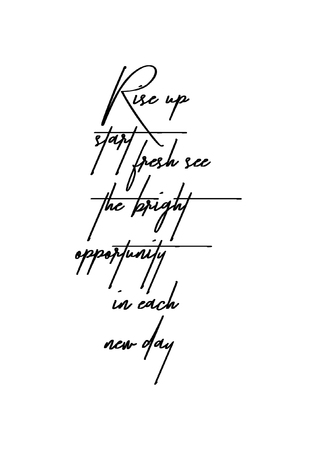 Rise up
start
fresh see
the bright
opportunity
in each
new day